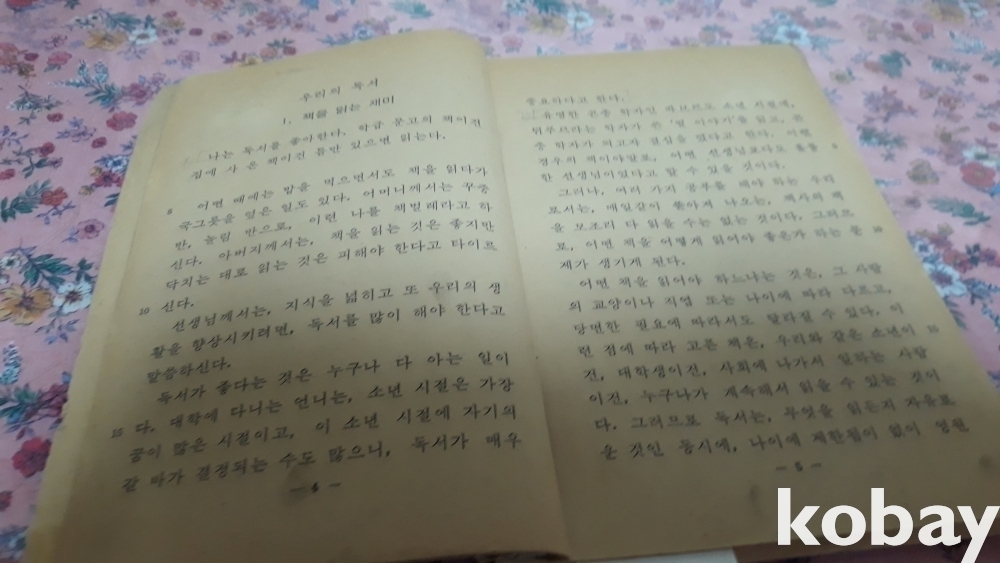 우리의 독서
1. 책을 읽는 재미
나는 독서를 좋아한다. 학급 문고의 책이건
집에 사 온 책이건 틈만 있으면 읽는다.
어떤 때에는 밥을 먹으면서도 책을 읽다가
5 국그릇을 엎은 일도 있다. 어머니께서는 꾸중
반, 놀림 반으로, 이런 나를 책벌레라고 하
신다. 아버지께서는, 책을 읽는 것은 좋지만
닥치는 대로 읽는 것은 피해야 한다고 타이르
10 신다.
선생님께서는, 지식을 넓히고 또 우리의 생
활을 향상시키려면, 독서를 많이 해야 한다고
말씀하신다.
독서가 좋다는 것은 누구나 다 아는 일이
15 다. 대학에 다니는 언니는, 소년 시절은 가장
꿈이 많은 시절이고, 이 소년 시절에 자기의
갈 바가 결정되는 수도 많으니, 독서가 매우
— 4 —
중요하다고 한다.
유명한 곤충 학자인 파브르도 소년 시절에,
뒤푸르라는 학자가 쓴 '벌 이야기'를 읽고, 곤
충 학자가 되고자 결심을 했다고 한다. 이런
경우의 책이야말로, 어떤 선생님보다도 훌륭 5
한 선생님이었다고 할 수 있을 것이다.
그러나, 여러 가지 공부를 해야 하는 우리
로서는, 매일같이 쏟아져 나오는, 책사의 책
을 모조리 다 읽을 수는 없는 것이다. 그러므
로, 어떤 책을 어떻게 읽어야 좋은가 하는 문 10
제가 생기게 된다.
어떤 책을 읽어야 하느냐는 것은, 그 사람
의 교양이나 직업 또는 나이에 따라 다르고,
당면한 필요에 따라서도 달라질 수 있다. 이
런 점에 따라 고른 책은, 우리와 같은 소년이 15
건, 대학생이건, 사회에 나가서 일하는 사람
이건, 누구나가 계속해서 읽을 수 있는 것이
다. 그러므로 독서는, 무엇을 읽든지 자유로
운 것인 동시에, 나이에 제한됨이 없이 영원
— 5 —
kobay